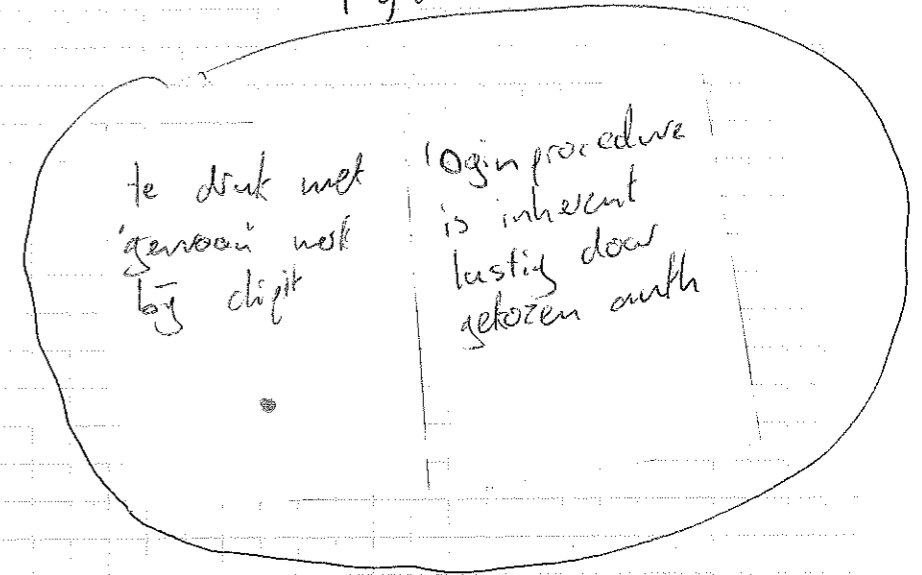 te druk met
'gewoon' werk
bij digit
login procedure
is inherent
lastig door
gekozen auth